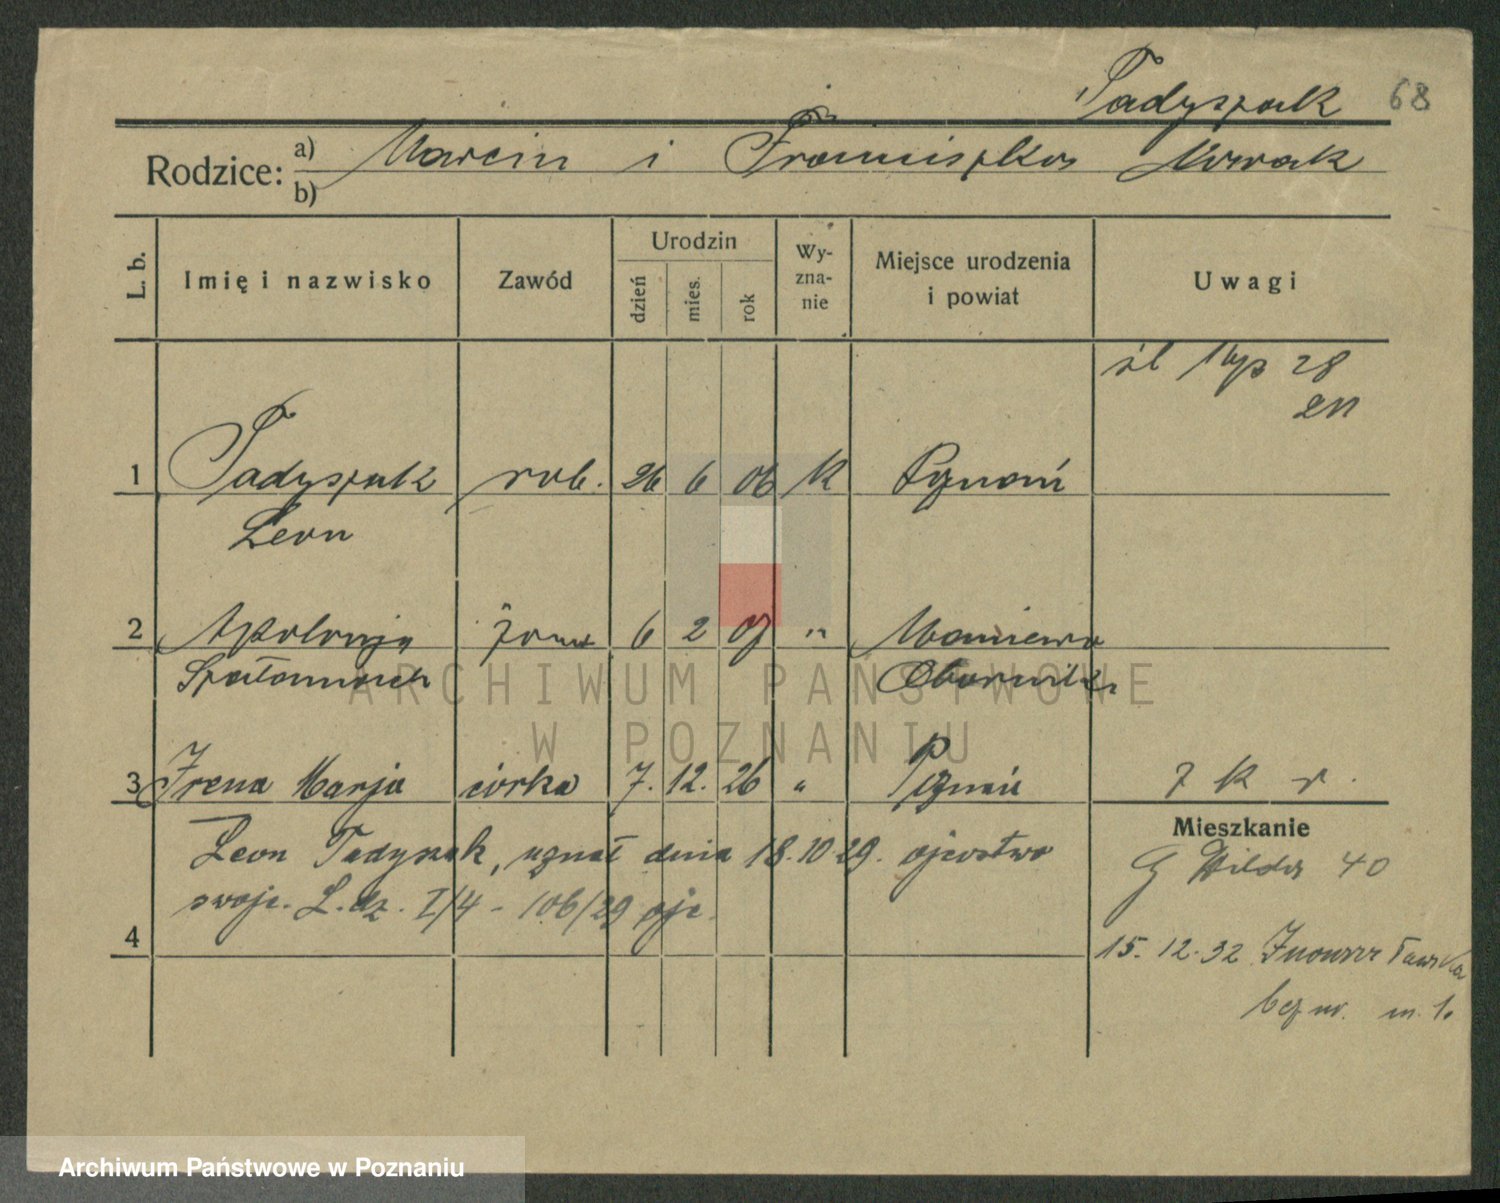 Tadyszak 68
Rodzice: a) Marcin i Franciszka Nowak
b)
L. b. Imię i nazwisko Zawód Urodzin dzień mies. rok Wy-zna-nie Miejsce urodzenia i powiat Uwagi
śl 28
1 Tadyszak rob. 26 6 06 k Poznań
Leon
2 Apolonja żona 6 2 07 " Maniewo
Oborniki
3 Irena Marja córka 7. 12. 26 " Poznań 7 k r.
Mieszkanie
Leon Tadyszak, uznał dnia 18.10.29. ojcostwo G Wilda 40
swoje. L. dz. I/4 - 106/29 ojc.
4 15. 12. 32 Inowrocławska
bez nr. m. 1.
ARCHIWUM PAŃSTWOWE
W POZNANIU
Archiwum Państwowe w Poznaniu